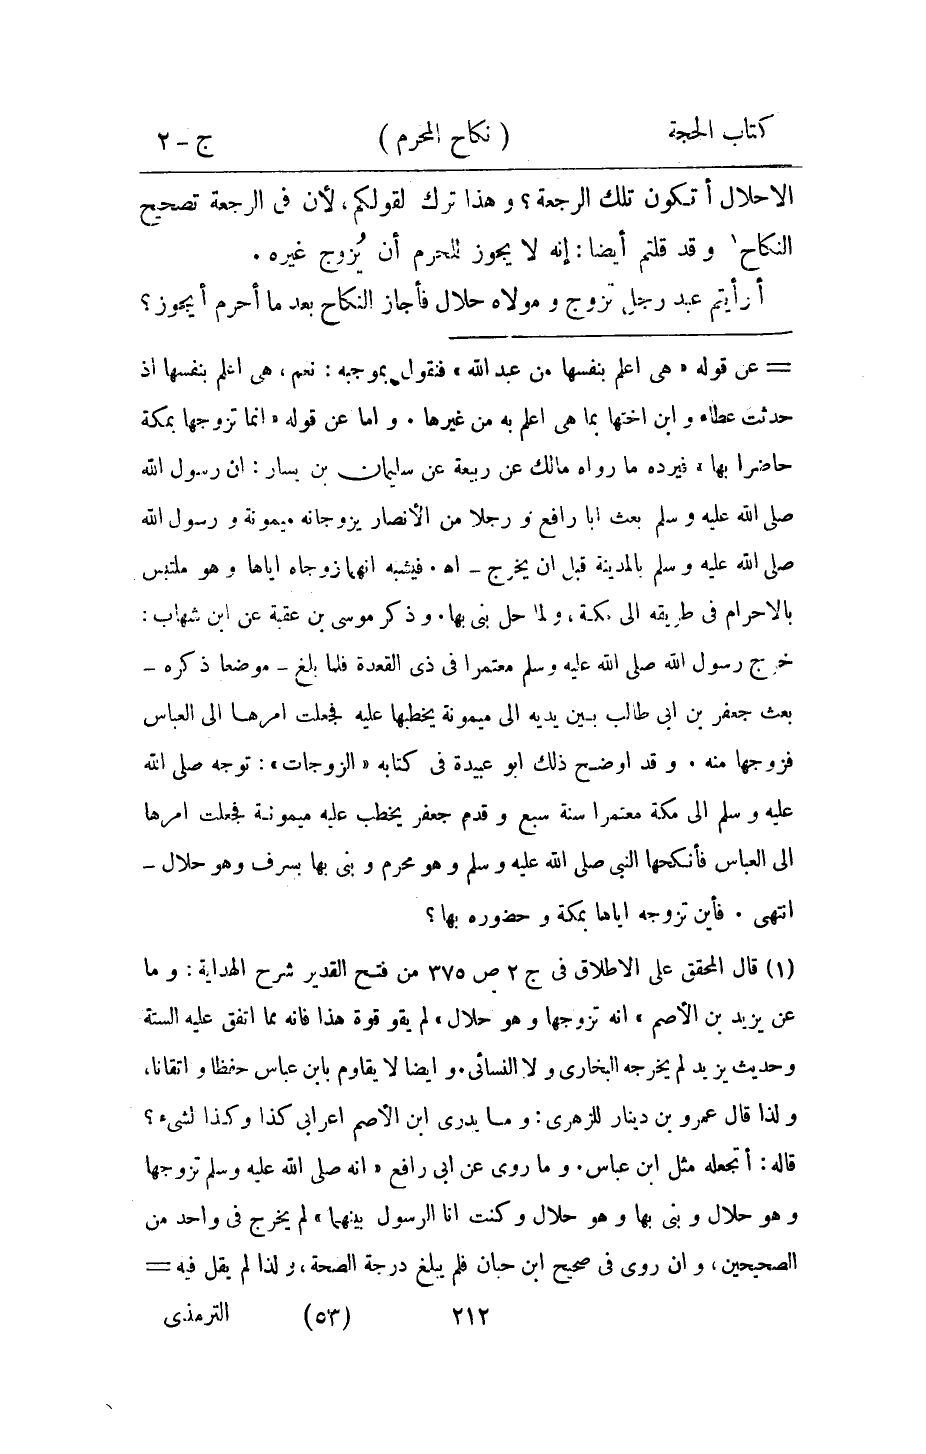 كتاب الحجة ( نكاح المحرم ) ج - ٢
الاحلال أ تكون تلك الرجعة ؟ و هذا ترك لقولكم، لأن فى الرجعة تصحيح
النكاح ١ و قد قلتم أيضا : إنه لا يجوز للمحرم أن يُزوج غيره .
أ رأيتم عبد رجل تزوج و مولاه حلال فأجاز النكاح بعد ما أحرم أ يجوز ؟
= عن قوله « هى اعلم بنفسها من عبد الله » فنقول بموجبه : نعم ، هى اعلم بنفسها اذ
حدثت عطاء و ابن اختها بما هى اعلم به من غيرها . و اما عن قوله « انما تزوجها بمكة
حاضرا بها » فيرده ما رواه مالك عن ربيعة عن سليمان بن يسار : ان رسول الله
صلى الله عليه و سلم بعث ابا رافع و رجلا من الأنصار يزوجانه ميمونة و رسول الله
صلى الله عليه و سلم بالمدينة قبل ان يخرج - اه . فيشبه انهما زوجاه اياها و هو ملتبس
بالاحرام فى طريقه الى مكة ، و لما حل بنى بها . و ذكر موسى بن عقبة عن ابن شهاب :
خرج رسول الله صلى الله عليه وسلم معتمرا فى ذى القعدة فلما بلغ - موضعا ذكره -
بعث جعفر بن ابى طالب بين يديه الى ميمونة يخطبها عليه فجعلت امرها الى العباس
فزوجها منه . و قد اوضح ذلك ابو عبيدة فى كتابه « الزوجات » : توجه صلى الله
عليه و سلم الى مكة معتمرا سنة سبع و قدم جعفر يخطب عليه ميمونة فجعلت امرها
الى العباس فأنكحها النبى صلى الله عليه و سلم و هو محرم و بنى بها بسرف وهو حلال -
انتهى . فأين تزوجه اياها بمكة و حضوره بها ؟
(١) قال المحقق على الاطلاق فى ج ٢ ص ٣٧٥ من فتح القدير شرح الهداية : و ما
عن يزيد بن الأصم « انه تزوجها و هو حلال » لم يقو قوة هذا فانه مما اتفق عليه الستة
وحديث يزيد لم يخرجه البخارى و لا النسائى . و ايضا لا يقاوم بابن عباس حفظا و اتقانا،
و لذا قال عمرو بن دينار للزهرى : و ما يدرى ابن الأصم اعرابى كذا وكذا لشىء ؟
قاله : أ تجعله مثل ابن عباس . و ما روى عن ابى رافع « انه صلى الله عليه وسلم تزوجها
و هو حلال و بنى بها و هو حلال وكنت انا الرسول بينهما » لم يخرج فى واحد من
الصحيحين ، و ان روى فى صحيح ابن حبان فلم يبلغ درجة الصحة ، و لذا لم يقل فيه =
٢١٢ (٥٣) الترمذى